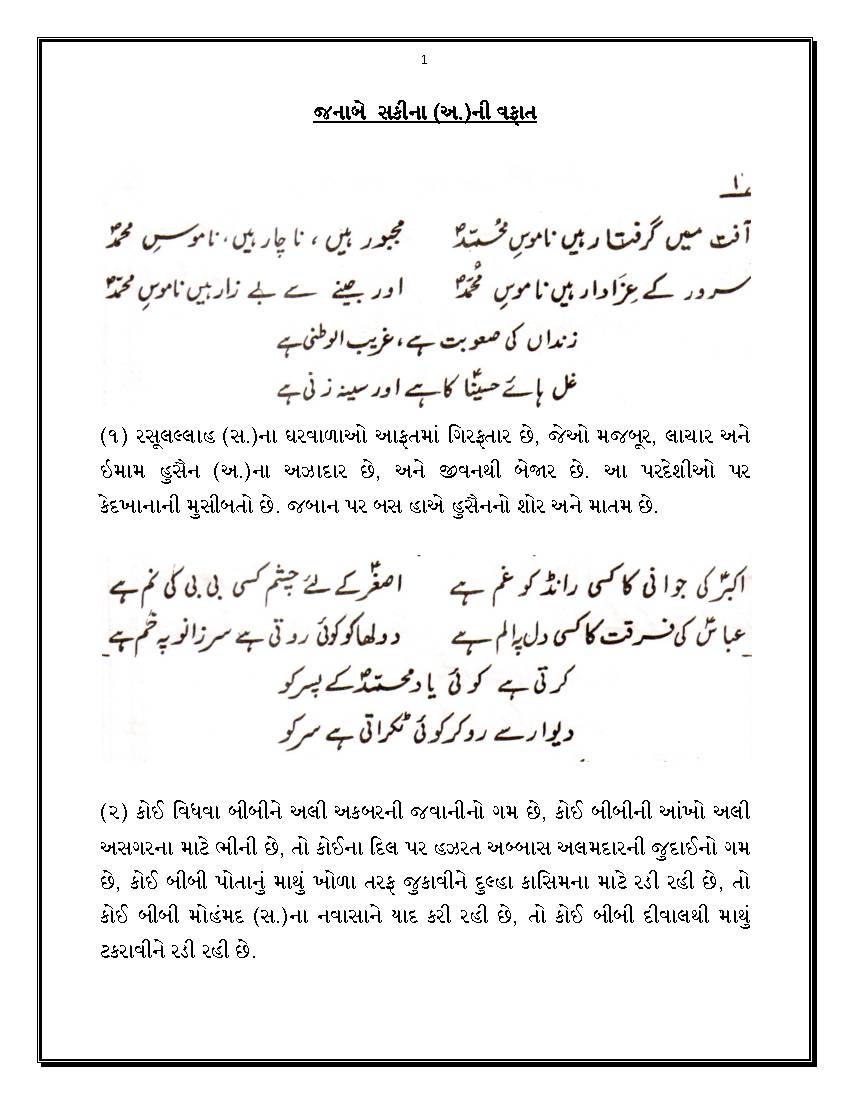 1
જનાબે સકીના (અ.)ની વફાત
۱
آفت میں گرفتار ہیں ناموسِ محمدؐ مجبور ہیں، ناچار ہیں، ناموسِ محمدؐ
سرور کے عزادار ہیں ناموسِ محمدؐ اور جینے سے بے زار ہیں ناموسِ محمدؐ
زنداں کی صعوبت ہے، غریب الوطنی ہے
غل ہائے حسیناؑ کا ہے اور سینہ زنی ہے
(૧) રસૂલલ્લાહ (સ.)ના ઘરવાળાઓ આફતમાં ગિરફતાર છે, જેઓ મજબૂર, લાચાર અને
ઈમામ હુસૈન (અ.)ના અઝાદાર છે, અને જીવનથી બેજાર છે. આ પરદેશીઓ પર
કેદખાનાની મુસીબતો છે. જબાન પર બસ હાએ હુસૈનનો શોર અને માતમ છે.
اکبرؑ کی جوانی کا کسی رانڈ کو غم ہے اصغرؑ کے لئے چشم کسی بی بی کی نم ہے
عباسؑ کی فرقت کا کسی دل پر الم ہے دولھا کو کوئی روتی ہے سر زانو پہ خم ہے
کرتی ہے کوئی یاد محمدؐ کے پسر کو
دیوار سے رو کر کوئی ٹکراتی ہے سر کو
(૨) કોઈ વિધવા બીબીને અલી અકબરની જવાનીનો ગમ છે, કોઈ બીબીની આંખો અલી
અસગરના માટે ભીની છે, તો કોઈના દિલ પર હઝરત અબ્બાસ અલમદારની જુદાઈનો ગમ
છે, કોઈ બીબી પોતાનું માથું ખોળા તરફ જુકાવીને દુલ્હા કાસિમના માટે રડી રહી છે, તો
કોઈ બીબી મોહંમદ (સ.)ના નવાસાને યાદ કરી રહી છે, તો કોઈ બીબી દીવાલથી માથું
ટકરાવીને રડી રહી છે.